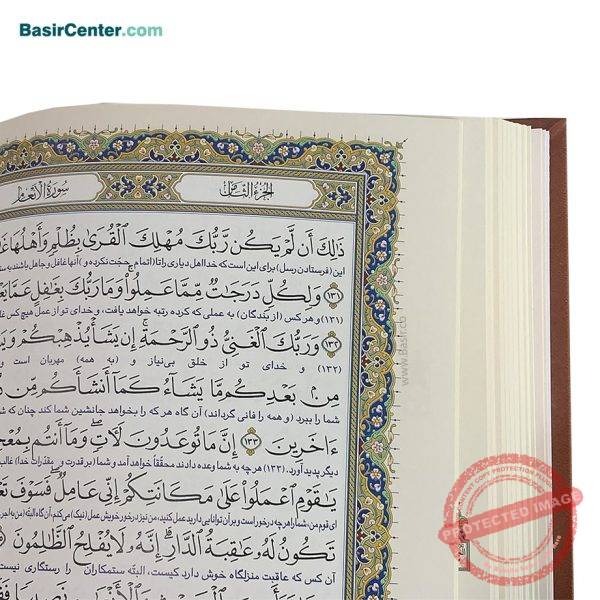 BasirCenter.com
سورة الأنعام
الجزء الثامن
ذَٰلِكَ أَن لَّمْ يَكُن رَّبُّكَ مُهْلِكَ ٱلْقُرَىٰ بِظُلْمٍ وَأَهْلُهَا
این (فرستادن رسل) برای این است که خدا اهل دیاری را تا (اتمام حجت نکرده و) آنها غافل و جاهل باشند به
﴿١٣١﴾ وَلِكُلٍّ دَرَجَٰتٌ مِّمَّا عَمِلُوا۟ وَمَا رَبُّكَ بِغَٰفِلٍ عَمَّا
(۱۳۱) و هر کس (از بندگان) به عملی که کرده رتبه خواهد یافت، و خدای تو از عمل هیچ کس
﴿١٣٢﴾ وَرَبُّكَ ٱلْغَنِىُّ ذُو ٱلرَّحْمَةِ ۚ إِن يَشَأْ يُذْهِبْكُمْ
(۱۳۲) و خدای تو از خلق بی‌نیاز و (به همه) مهربان است
مِنۢ بَعْدِكُم مَّا يَشَآءُ كَمَآ أَنشَأَكُم مِّن
شما را ببرد (و همه را فانی گرداند) آن گاه هر که را بخواهد جانشین شما کند چنان که
ءَاخَرِينَ ﴿١٣٣﴾ إِنَّ مَا تُوعَدُونَ لَءَاتٍ ۖ وَمَآ أَنتُم
دیگر پدید آورد. (۱۳۳) هر چه به شما وعده دادند محققا خواهد آمد و شما (بر قدرت و مقدرات خدا) غالب
يَٰقَوْمِ ٱعْمَلُوا۟ عَلَىٰ مَكَانَتِكُمْ إِنِّى عَامِلٌ ۖ فَسَوْفَ
ای قوم من، شما را هر چه در خور است و بر آن توانایی دارید عمل کنید، من نیز در خور خویش عمل (نیک) می‌کنم، آن گاه البته
تَكُونُ لَهُۥ عَٰقِبَةُ ٱلدَّارِ ۗ إِنَّهُۥ لَا يُفْلِحُ ٱلظَّٰلِمُونَ
آن کس که عاقبت منزلگاه خوش دارد کیست، البته ستمکاران را رستگاری نیست
PROTECTED IMAGE